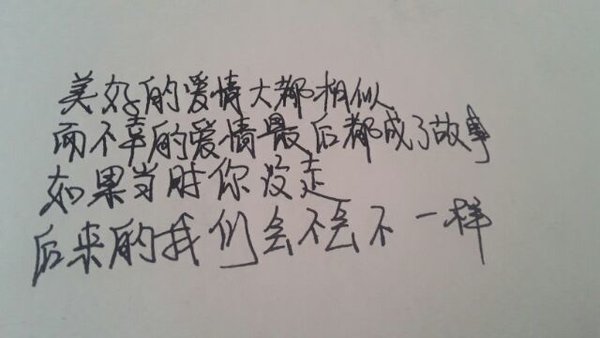 美好的爱情大都相似
而不幸的爱情最后都成了故事
如果当时你没走
后来的我们会不会不一样